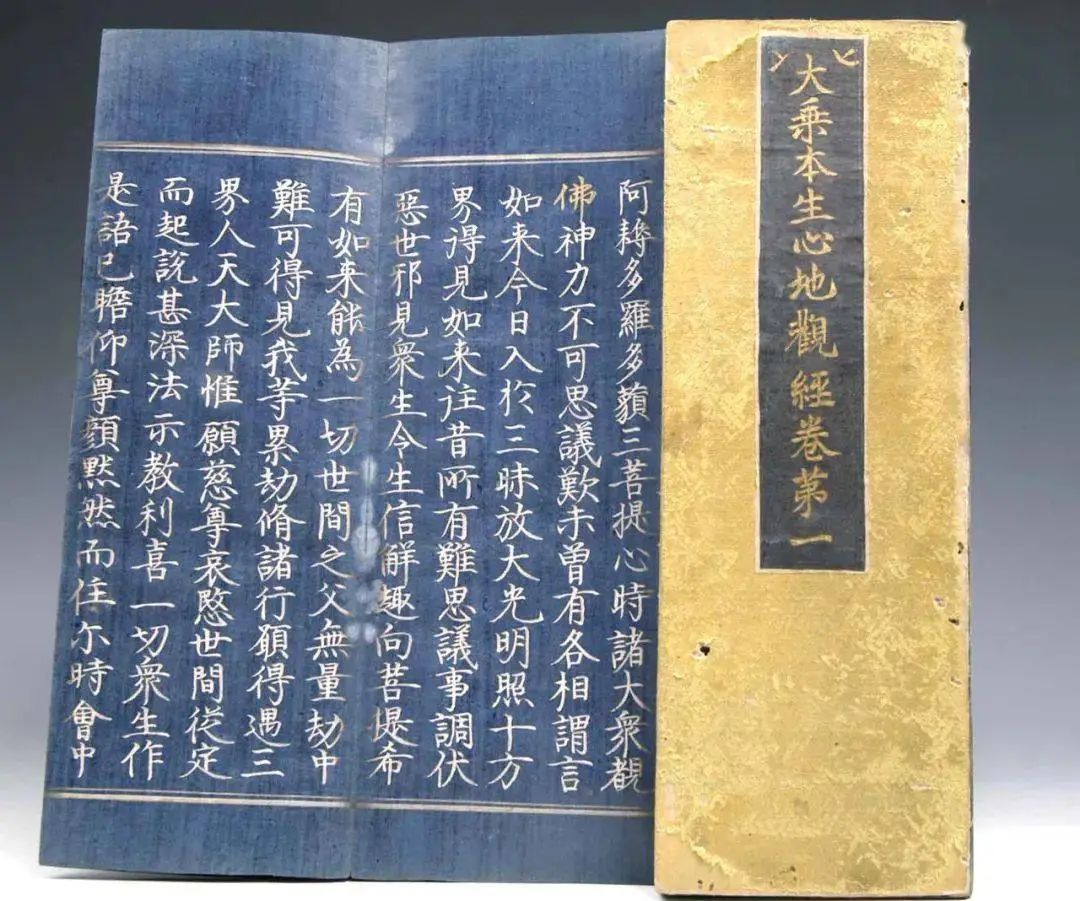 大乘本生心地觀經卷第一
阿耨多羅多藐三菩提心時諸大衆覩
佛神力不可思議歎未曾有各相謂言
如来今日入於三昧放大光明照十方
界得見如来往昔所有難思議事調伏
惡世邪見衆生令生信解趣向菩提希
有如来能為一切世間之父無量劫中
難可得見我等累劫脩諸行願得遇三
界人天大師惟願慈尊哀愍世間從定
而起說甚深法示教利喜一切衆生作
是語已瞻仰尊顏默然而住尔時會中